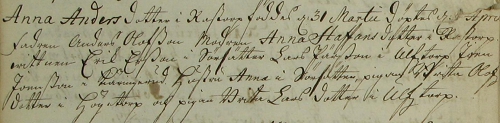 Anna Anders dotter i Rastorp föddes d. 31 Martii döptes d. 3 Apr
fadren Anders Olofsson Modren Anna Staffans dotter i Rastorp
wittnen Erik Ersson i Sörsätter Lars Pärsson i Ulfstorp Joen
Joensson i hustru Anna i Sörsätter, pigan Brita Olofs
dotter i Högstorp och pigan Brita Lars dotter i Ulfstorp.